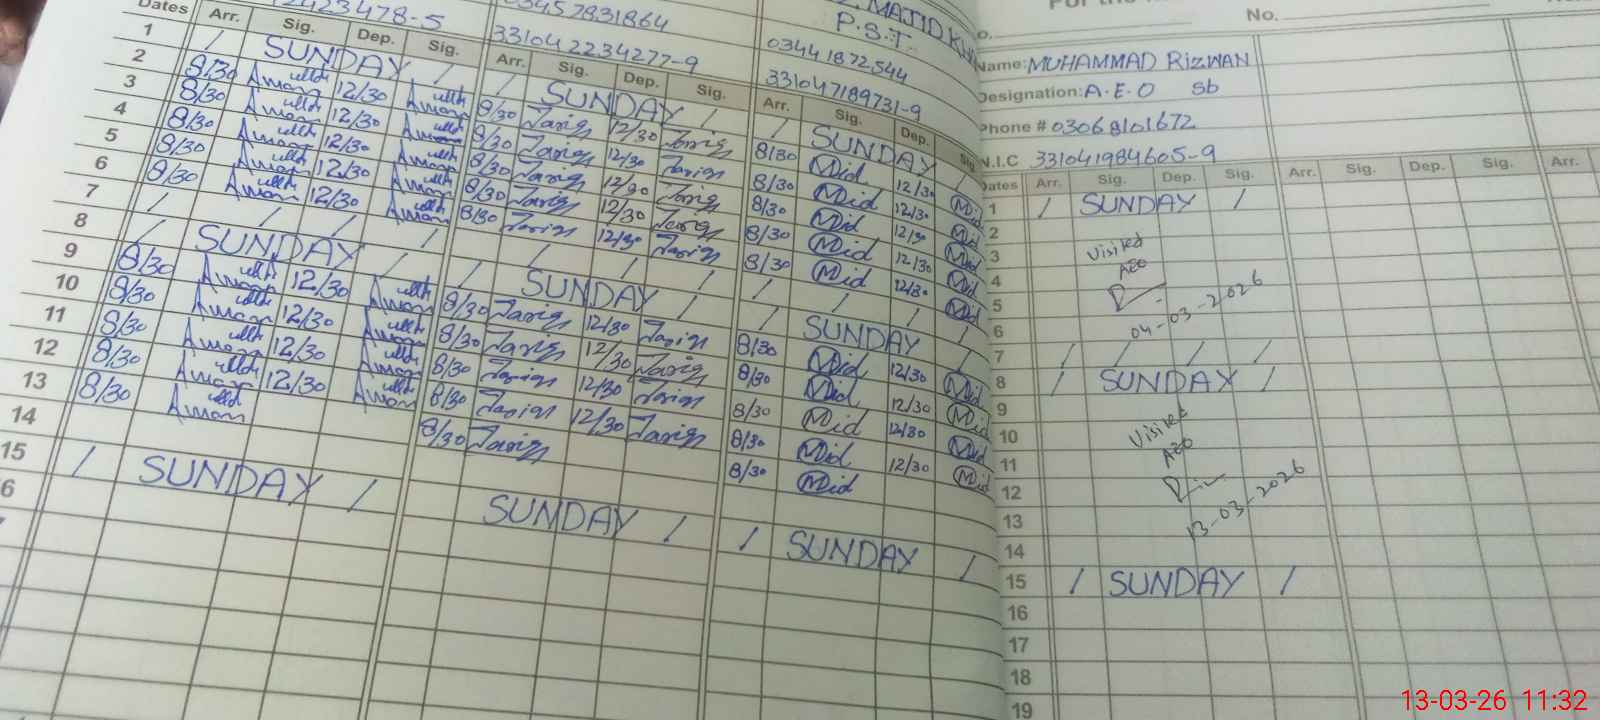 Dates Arr. Sig. Dep. Sig. Arr. Sig. Dep. Sig. Arr. Sig. Dep. Sig.
23478-5
03457831864
331042234277-9
MAJID
P.S.T.
03441872544
331047189731-9
1 / SUNDAY / / SUNDAY / / SUNDAY /
2 8/30 Aman 12/30 Aman 8/30 Tariq 12/30 Tariq 8/30 Mid 12/30 Mid
3 8/30 Aman 12/30 Aman 8/30 Tariq 12/30 Tariq 8/30 Mid 12/30 Mid
4 8/30 Aman 12/30 Aman 8/30 Tariq 12/30 Tariq 8/30 Mid 12/30 Mid
5 8/30 Aman 12/30 Aman 8/30 Tariq 12/30 Tariq 8/30 Mid 12/30 Mid
6 8/30 Aman 12/30 Aman 8/30 Tariq 12/30 Tariq 8/30 Mid 12/30 Mid
7 / / / / / / / / / / / /
8 / SUNDAY / / SUNDAY / / SUNDAY /
9 8/30 Aman 12/30 Aman 8/30 Tariq 12/30 Tariq 8/30 Mid 12/30 Mid
10 8/30 Aman 12/30 Aman 8/30 Tariq 12/30 Tariq 8/30 Mid 12/30 Mid
11 8/30 Aman 12/30 Aman 8/30 Tariq 12/30 Tariq 8/30 Mid 12/30 Mid
12 8/30 Aman 12/30 Aman 8/30 Tariq 12/30 Tariq 8/30 Mid 12/30 Mid
13 8/30 Aman 8/30 Tariq 8/30 Mid
14
15 / SUNDAY / SUNDAY / / SUNDAY /
6
No.
Name: MUHAMMAD RIZWAN
Designation: A.E.O Sb
Phone # 03068101672
N.I.C 331041984605-9
Dates Arr. Sig. Dep. Sig. Arr. Sig. Dep. Sig. Arr.
1 / SUNDAY /
2
3 Visited
4 AEO
5 04-03-2026
6
7 / / / /
8 / SUNDAY /
9
10 Visited
11 AEO
12
13 13-03-2026
14
15 / SUNDAY /
16
17
18
19
13-03-26 11:32